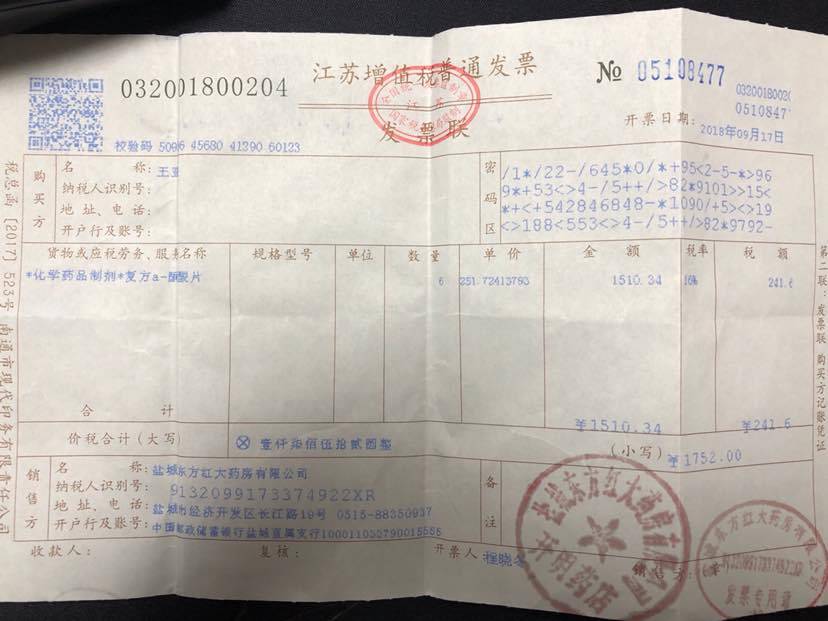 032001800204
江苏增值税普通发票
№ 05108477
0320018002
0510847
发票联
开票日期: 2018年09月17日
校验码 5096 45680 41290 60123
购买方
名 称: 王
纳税人识别号:
地址、电话:
开户行及账号:
密码区
/1*/22-/645*0/*+95<2-5-*>96
9*+53<>4-/5++/>82*9101>>15<
*+<+542846848-*1090/+5><>19
<>188<553<>4-/5++/>82*9792-
货物或应税劳务、服务名称 规格型号 单位 数量 单价 金额 税率 税额
*化学药品制剂*复方a-酮酸片 6 251.72413793 1510.34 16% 241.6
合 计 ¥1510.34 ¥241.6
价税合计(大写) ⊗ 壹仟柒佰伍拾贰圆整 (小写) ¥1752.00
销售方
名 称: 盐城东方红大药房有限公司
纳税人识别号: 9132099173374922XR
地址、电话: 盐城市经济开发区长江路19号 0515-88350937
开户行及账号: 中国邮政储蓄银行盐城直属支行
备注
收款人: 复核: 开票人: 程晓冬 销售方:(章
税总函[2017]523号 南通市现代印务有限责任公司
第二联:发票联 购买方记账凭证
盐城东方红大药房有限公司
发票专用章